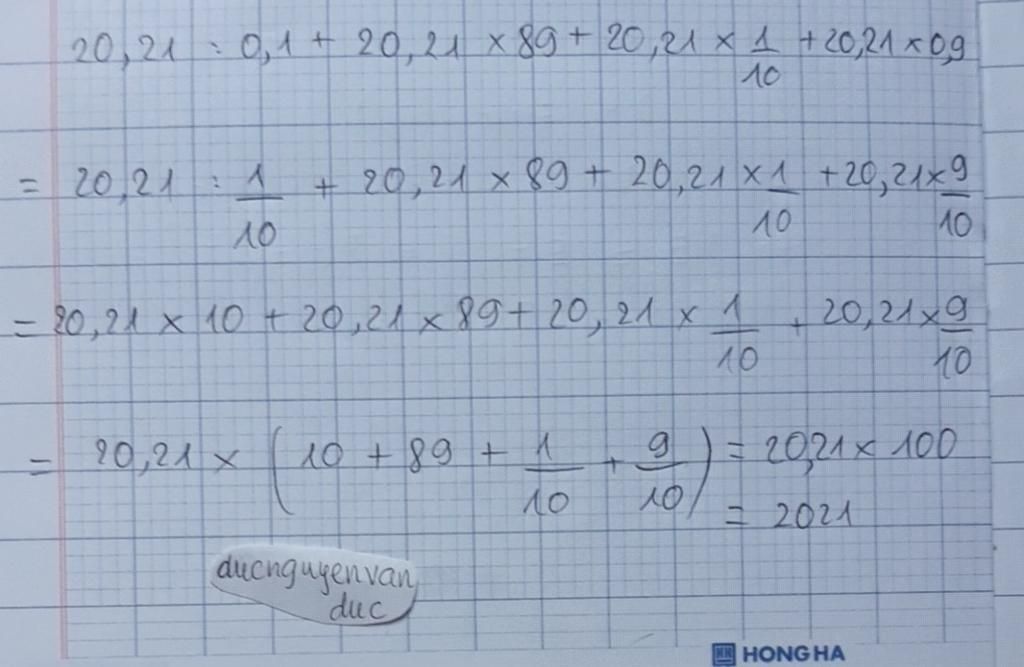 20,21 : 0,1 + 20,21 × 89 + 20,21 × 1/10 + 20,21 × 0,9
= 20,21 : 1/10 + 20,21 × 89 + 20,21 × 1/10 + 20,21 × 9/10
= 20,21 × 10 + 20,21 × 89 + 20,21 × 1/10 + 20,21 × 9/10
= 20,21 × (10 + 89 + 1/10 + 9/10) = 20,21 × 100
= 2021
ducnguyenvan
duc
HONG HA